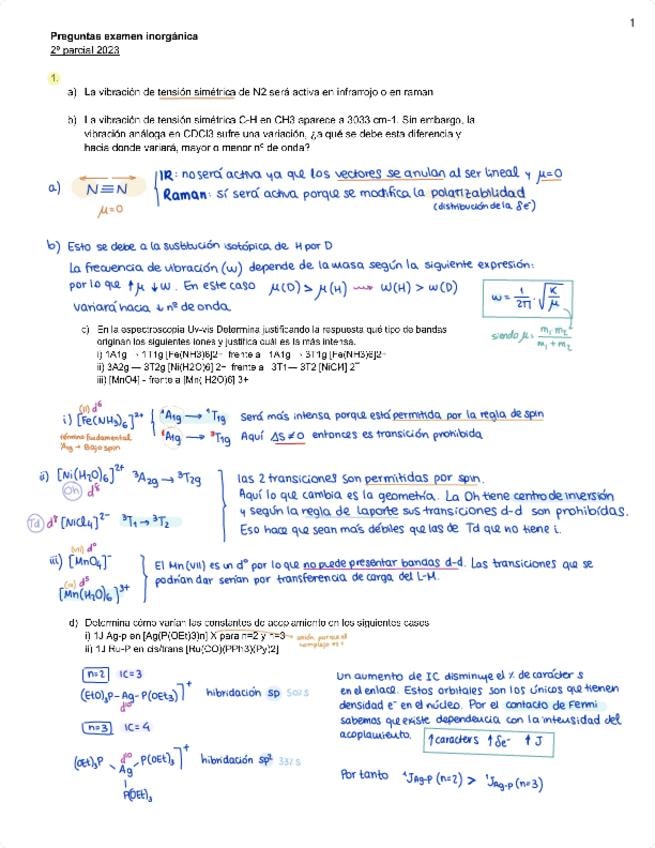 1
Preguntas examen inorgánica
2º parcial 2023
1.
a) La vibración de tensión simétrica de N2 será activa en infrarrojo o en raman
b) La vibración de tensión simétrica C-H en CH3 aparece a 3033 cm-1. Sin embargo, la
vibración análoga en CDCl3 sufre una variación, ¿a qué se debe esta diferencia y
hacia donde variará, mayor o menor nº de onda?
a) N≡N
μ=0
IR: no será activa ya que los vectores se anulan al ser lineal y μ=0
Raman: sí será activa porque se modifica la polarizabilidad
(distribución de la δe⁻)
b) Esto se debe a la sustitución isotópica de H por D
La frecuencia de vibración (ω) depende de la masa según la siguiente expresión:
por lo que ↑μ ↓ω. En este caso μ(D) > μ(H) → ω(H) > ω(D)
variará hacia ↓ nº de onda
ω = 1/2π · √K/μ
siendo μ = m₁ m₂ / m₁ + m₂
c) En la espectroscopia Uv-vis Determina justificando la respuesta qué tipo de bandas
originan los siguientes iones y justifica cuál es la más intensa.
i) 1A1g → 1T1g [Fe(NH3)6]2+ frente a 1A1g → 3T1g [Fe(NH3)6]2+
ii) 3A2g — 3T2g [Ni(H2O)6] 2+ frente a 3T1— 3T2 [NiCl4] 2-
iii) [MnO4] - frente a [Mn( H2O)6] 3+
(II) d⁶
i) [Fe(NH₃)₆]²⁺
término fundamental
¹A₁g → Bajo spin
¹A₁g → ¹T₁g Será más intensa porque está permitida por la regla de spin
¹A₁g → ³T₁g Aquí ΔS≠0 entonces es transición prohibida
ii) [Ni(H₂O)₆]²⁺ ³A₂g → ³T₂g
Oh d⁸
Td d⁸ [NiCl₄]²⁻ ³T₁ → ³T₂
las 2 transiciones son permitidas por spin.
Aquí lo que cambia es la geometría. La Oh tiene centro de inversión
y según la regla de laporte sus transiciones d-d son prohibidas.
Eso hace que sean más débiles que las de Td que no tiene i.
(VII) d⁰
iii) [MnO₄]⁻
[Mn(H₂O)₆]³⁺
El Mn(VII) es un d⁰ por lo que no puede presentar bandas d-d. Las transiciones que se
podrían dar serían por transferencia de carga del L-M.
d) Determina cómo varían las constantes de acoplamiento en los siguientes casos
i) 1J Ag-p en [Ag(P(OEt)3)n] X para n=2 y n=3
ii) 1J Ru-P en cis/trans [Ru(CO)(PPh3)(Py)2]
n=2 IC=3
(EtO)₃P–Ag–P(OEt₃)]⁺ hibridación sp 50% s
d¹⁰
n=3 IC=4
(OEt)₃P Ag P(OEt)₃]⁺ hibridación sp² 33% s
d¹⁰
P(OEt)₃
Un aumento de IC disminuye el % de carácter s
en el enlace. Estos orbitales son los únicos que tienen
densidad e⁻ en el núcleo. Por el contacto de Fermi
sabemos que existe dependencia con la intensidad del
acoplamiento.
↑caracters ↑δe⁻ ↑J
Por tanto ¹JAg-P (n=2) > ¹JAg-P (n=3)